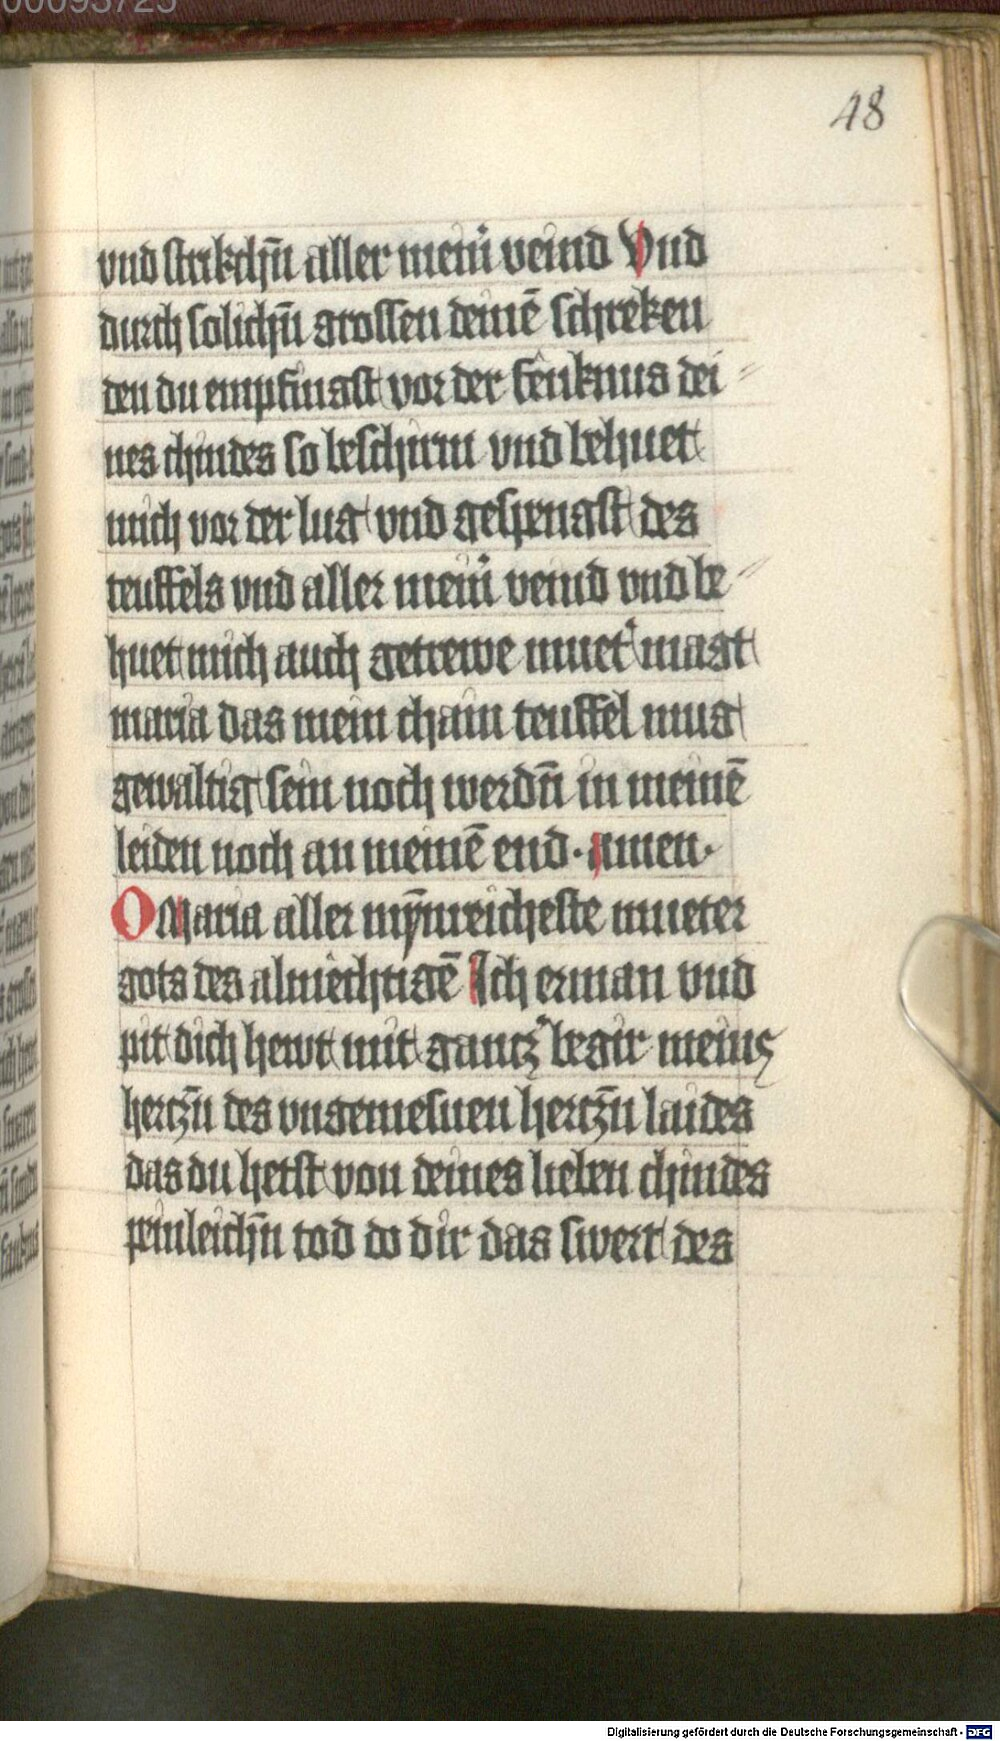 00093725
48
vnd strikchn̄ aller mein̄ veind Vnd
durch solichn̄ grossen deinē schreken
den du empfingst vor der fenknus dei=
nes chindes so beschirm vnd behuet
mich vor der lug vnd gespengst des
teuffels vnd aller mein̄ veind vnd be=
huet mich auch getrewe muet' magt
maria das mein chain teuffel mug
gewaltig sein noch werdn̄ in meinē
leiden noch an meinē end · amen ·
O Maria aller mȳnreicheste mueter
gots des almechtigē Ich erman vnd
pit dich hewt mit gantz' begir meins
hertzn̄ des vngemesnen hertzn̄ laides
das du hetst von deines lieben chindes
peinleichn̄ tod do dir das swert des
Digitalisierung gefördert durch die Deutsche Forschungsgemeinschaft - DFG